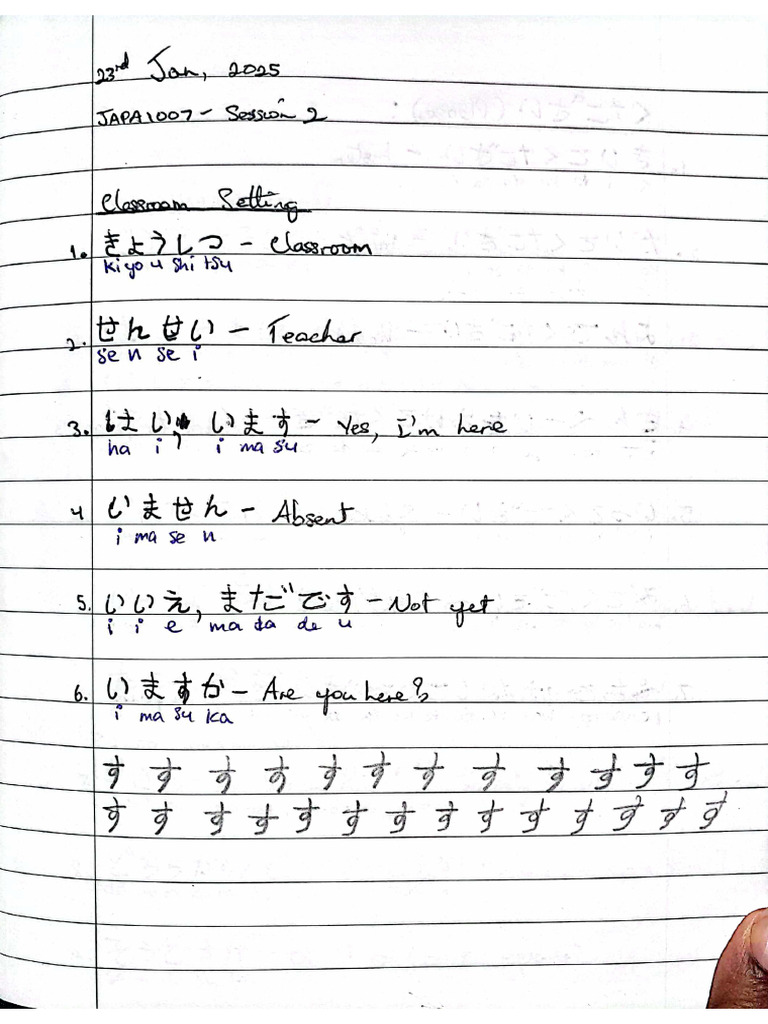 23rd Jan, 2025
JAPA1007 - Session 2
Classroom Setting
1. きょうしつ - Classroom
ki yo u shi tsu
2. せんせい - Teacher
se n se i
3. はい, います - Yes, I'm here
ha i, i ma su
4 いません - Absent
i ma se n
5. いいえ, まだです - Not yet
i i e, ma da de u
6. いますか - Are you here?
i ma su ka
す す す す す す す す す す す す
す す す す す す す す す す す す す す